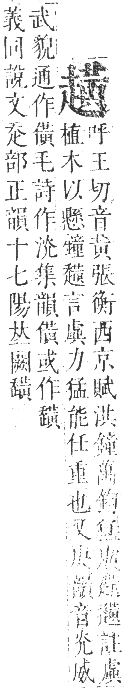 趪
呼王切音黄張衡西京賦洪鐘萬鈞猛虡趪趪註虡
植木以懸鐘趪言虡力猛能任重也又庚韻音觥威
武貌通作僙毛詩作洸集韻僙或作䡽
義同說文走部正韻十七陽𠀤闕